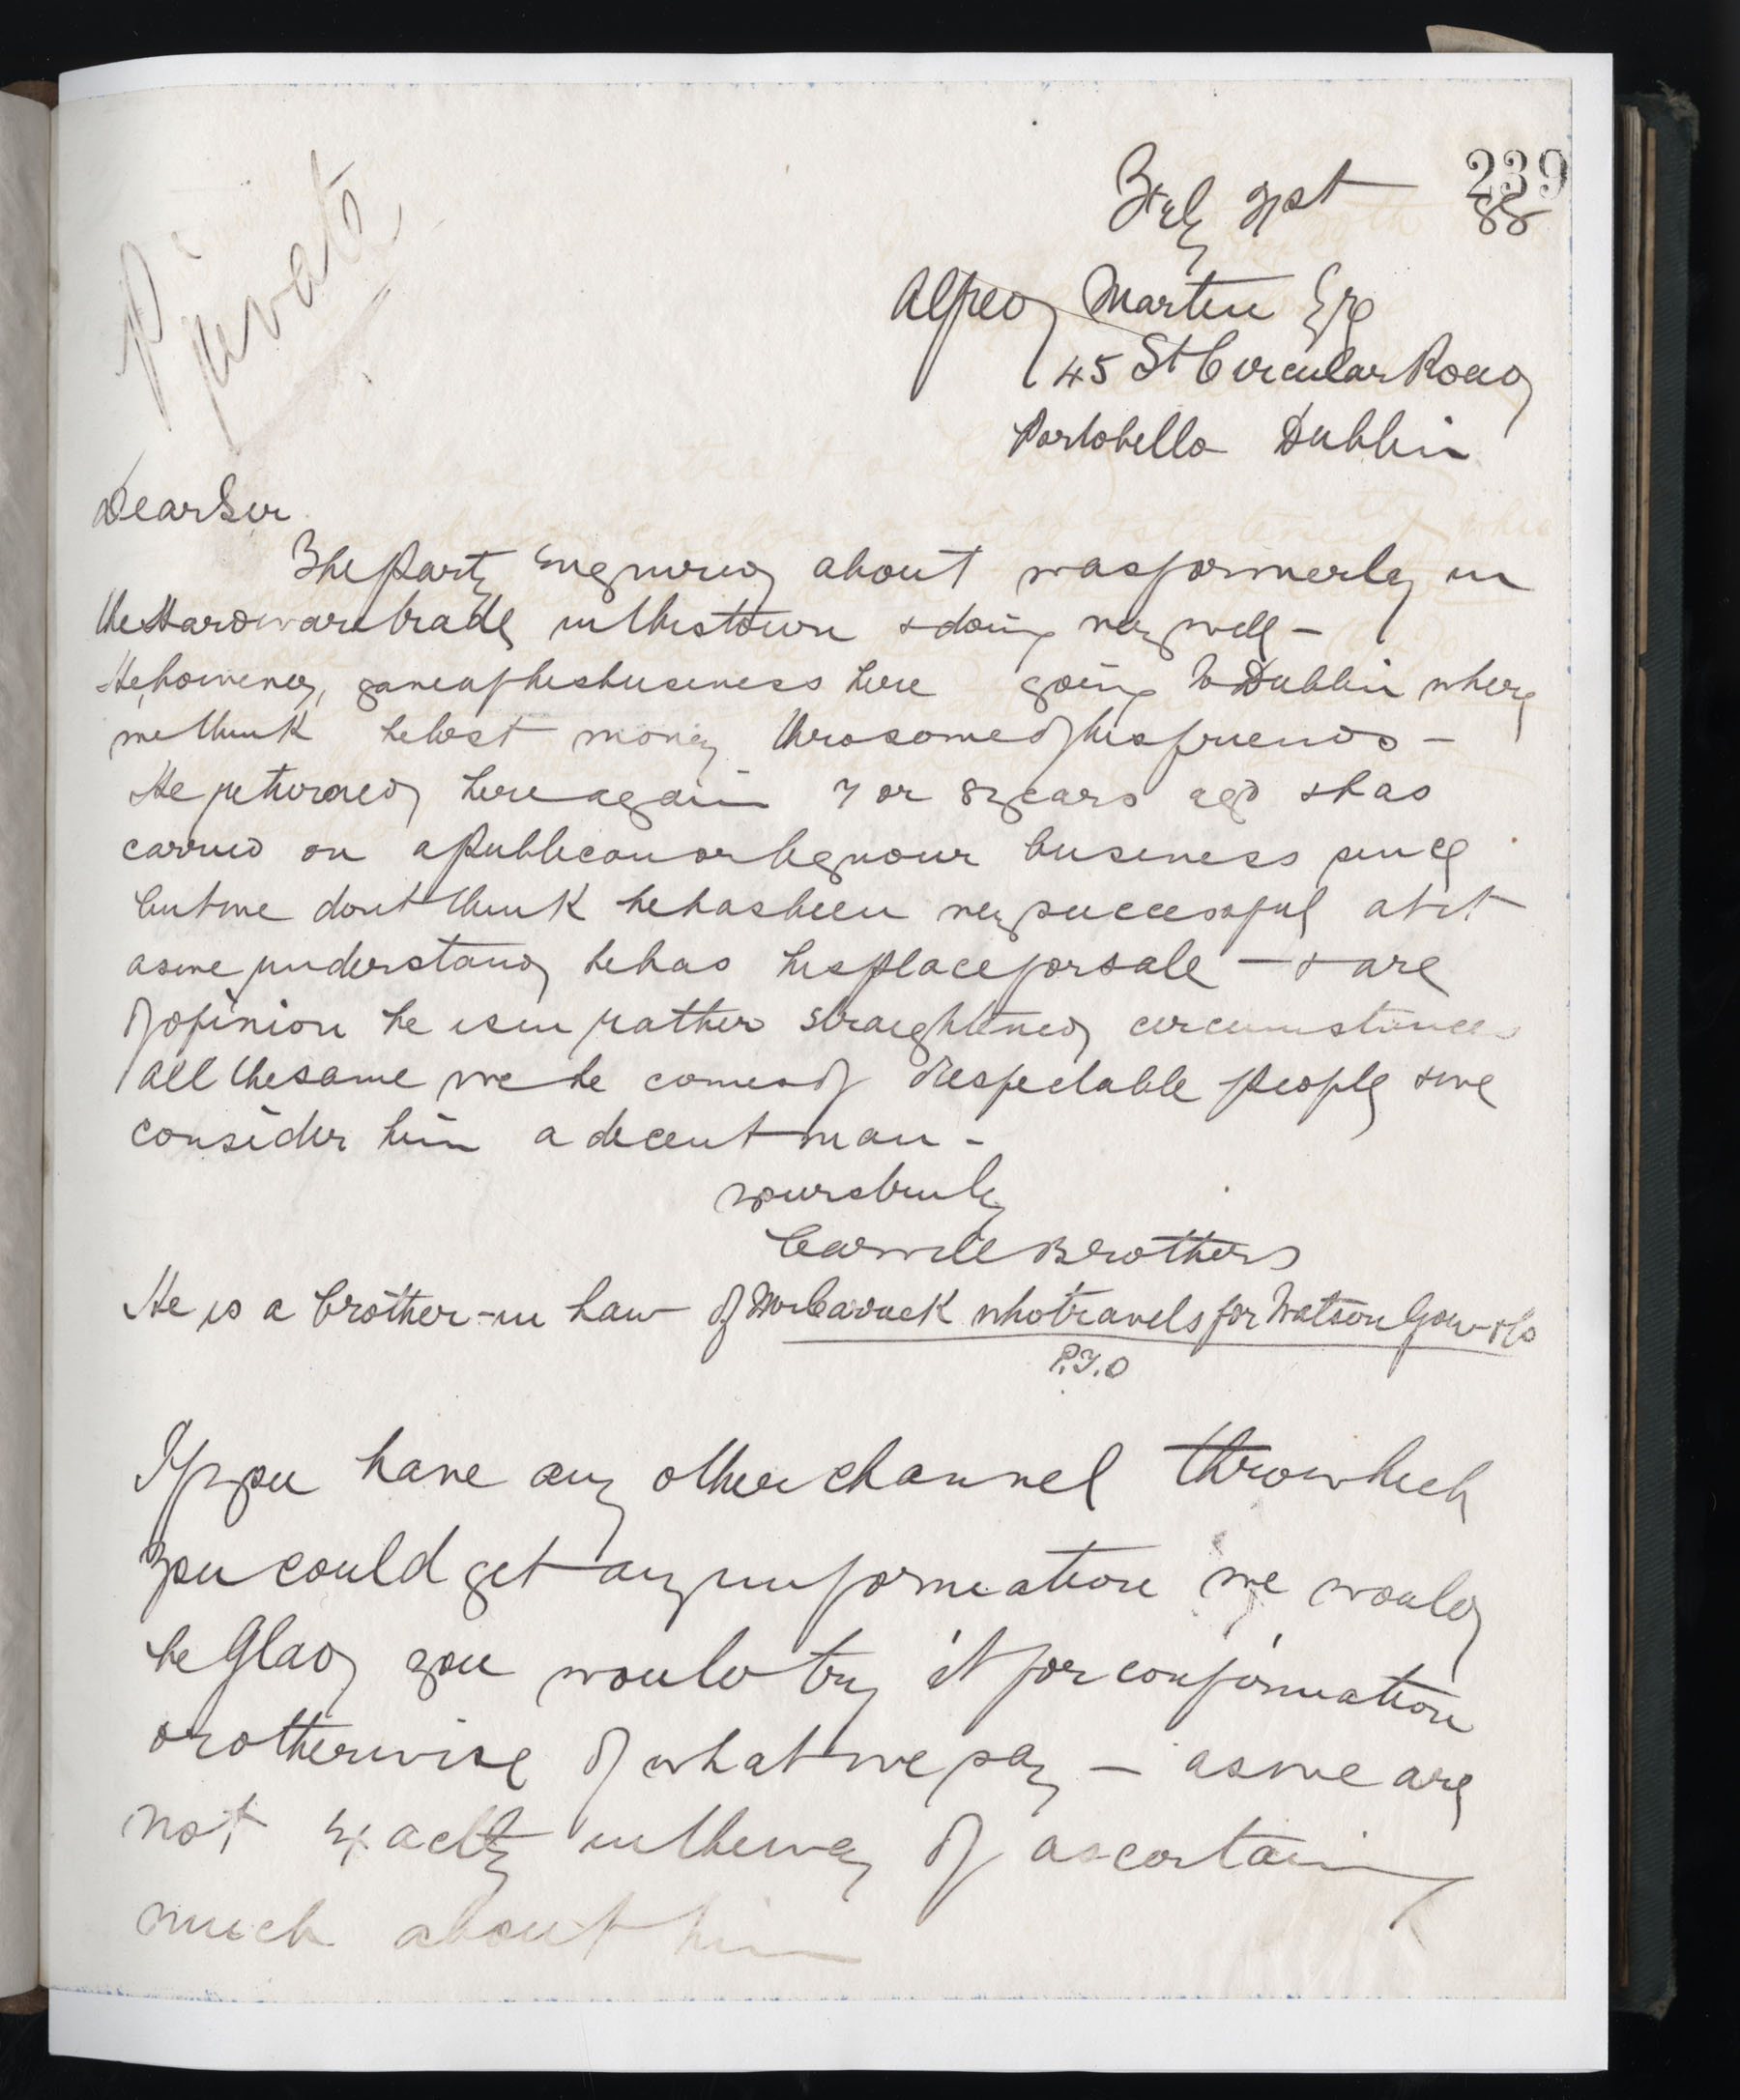 239
Private
July 21st 88
Alfred Martin Esq
45 St Circular Road
Portobello Dublin
Dear Sir
The Party Enquired about was formerly in
the Hardware trade in this town & doing very well -
He, however, gave up his business here going to Dublin where
we think he lost money thro some of his friends -
He returned here again 7 or 8 years ago & has
carried on a Publican or liquour business since
but we dont think he has been very successful at it
as we understand he has his place for sale - & are
of opinion he is in rather straightened circumstances
All the same we he comes of Respectable people & we
consider him a decent man -
Yours truly
Carvill Brothers
He is a brother-in Law of Mr who travels for Watson Gow & Co
P.T.O
If you have any other channel thro which
you could get any information we would
be Glad you would try it for confirmation
or otherwise of what we say - as we are
not Exactly in the way of ascertaining
much about him